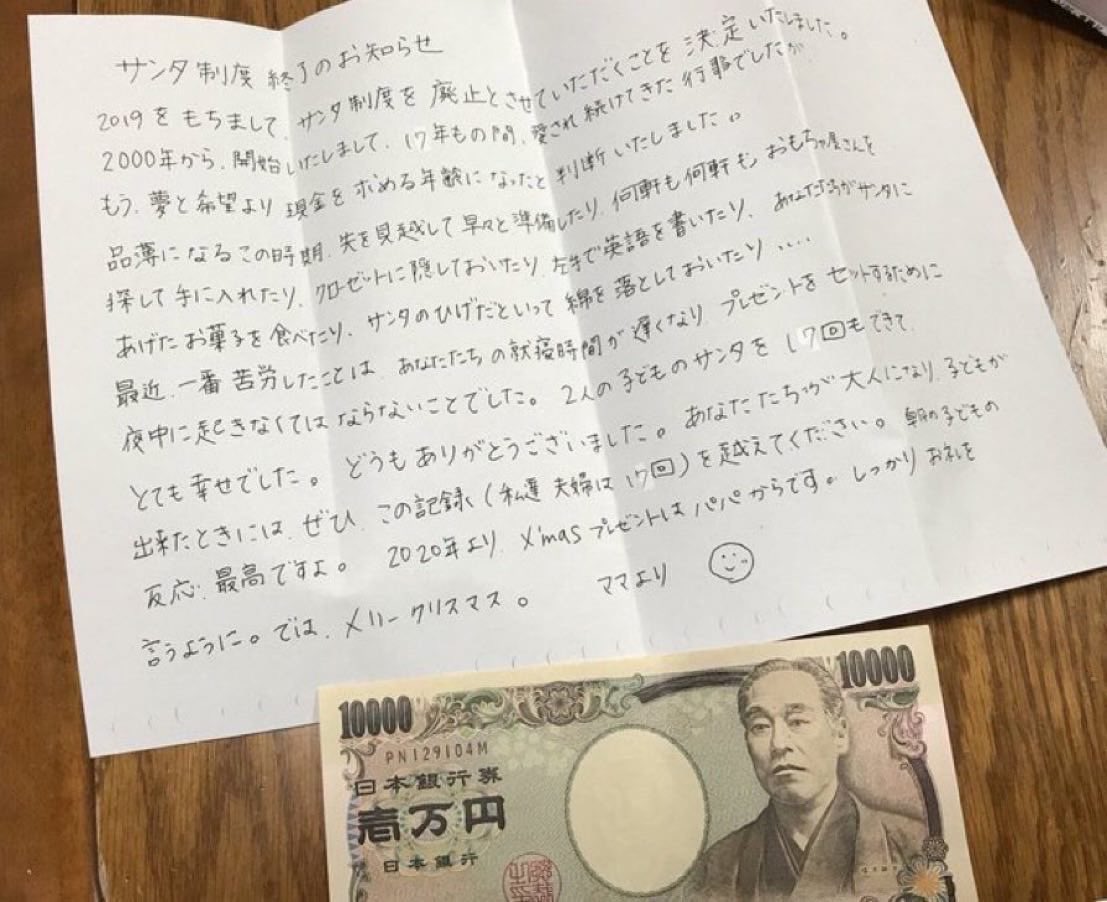 サンタ制度 終了のお知らせ
2019をもちまして、サンタ制度を廃止とさせていただくことを決定いたしました。
2000年から、開始いたしまして、17年もの間、愛され続けてきた行事でしたが
もう、夢と希望より現金を求める年齢になったと判断いたしました。
品薄になるこの時期、先を見越して早々と準備したり、何軒も何軒もおもちゃ屋さんを
探して手に入れたり、クローゼットに隠しておいたり、左手で英語を書いたり、あなたたちがサンタに
あげたお菓子を食べたり、サンタのひげだといって綿を落としておいたり....
最近、一番苦労したことは、あなたたちの就寝時間が遅くなり、プレゼントをセットするために
夜中に起きなくてはならないことでした。2人の子どものサンタを17回もできて、
とても幸せでした。どうもありがとうございました。あなたたちが大人になり、子どもが
出来たときには、ぜひ、この記録(私達夫婦は17回)を越えてください。朝の子どもの
反応、最高ですよ。 2020年より、X'masプレゼントはパパからです。しっかりお礼を
言うように。では、メリークリスマス。 ママより
10000 10000
PN129104M
日本銀行券
壱万円
日本銀行